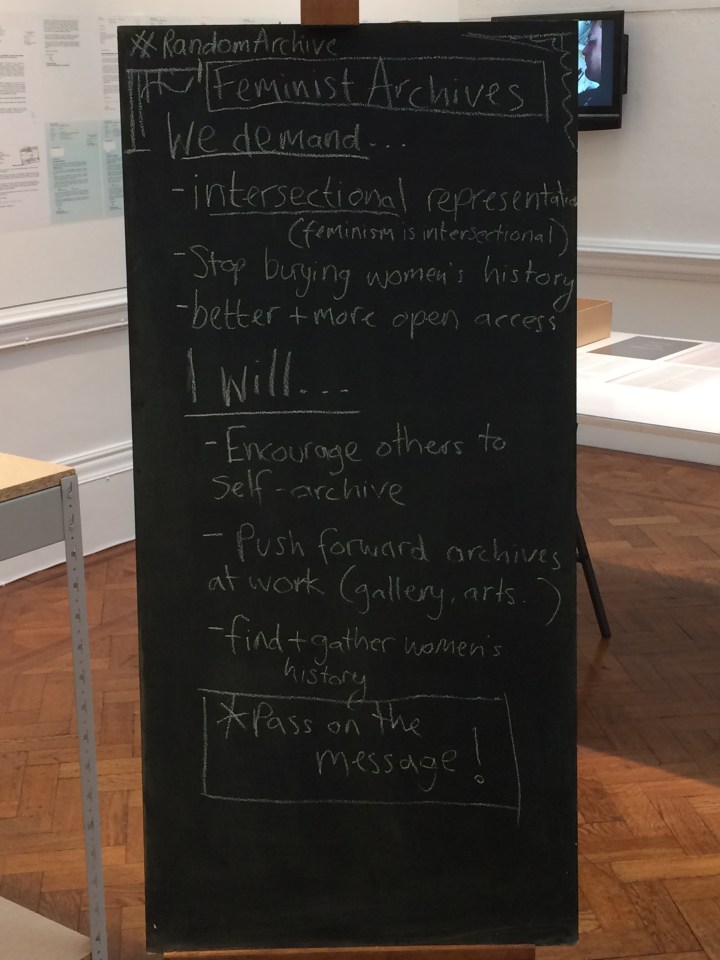 #RandomArchive
Feminist Archives
We demand...
- intersectional representation
(feminism is intersectional)
- Stop burying women's history
- better + more open access
I will...
- Encourage others to
self-archive
- Push forward archives
at work (gallery, arts..)
- find + gather women's
history
*Pass on the
message!